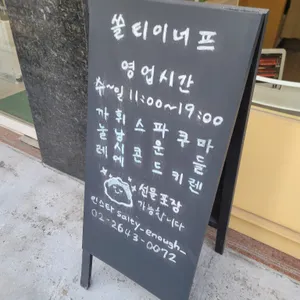 쏠티이너프
영업시간
수~일 11:00~19:00
까눌레
휘낭시에
스콘
파운드
쿠키
마들렌
선물포장
가능합니다
인스타 salty-enough_
02-2643-0072